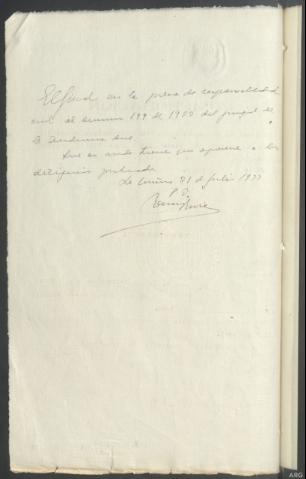 El Fiscal en la pieza de responsabilidad
civil del sumario 199 de 1933 del juzgado de
la Audiencia dice:
Que en nada tiene que oponerse a las
diligencias practicadas
La Coruña 21 de Julio 1933
P. D.
ARG